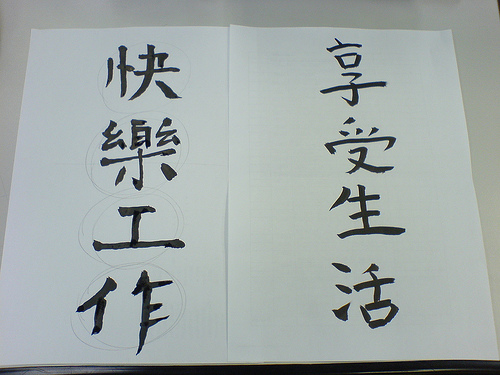 享受生活
快樂工作